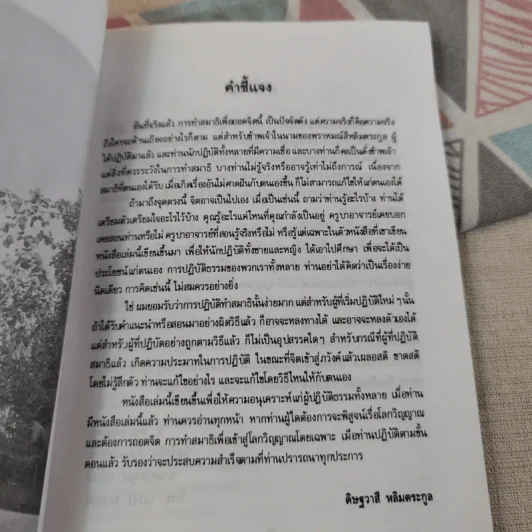 คำชี้แจง
อันที่จริงแล้ว การทำสมาธิเพื่อถอดจิตนี้ เป็นปัจจัตตัง แต่ความจริงก็คือความจริง
ถึงใครจะค้านเถียงอย่างไรก็ตาม แต่สำหรับข้าพเจ้าในนามของพราหมณ์สีหลิมตระกูล ผู้
ได้ปฏิบัติมาแล้ว และท่านนักปฏิบัติทั้งหลายที่มีความเชื่อ และบางท่านก็จะเป็นดั่งข้าพเจ้า
แต่สิ่งที่ควรระวังในการทำสมาธิ บางท่านไม่รู้จริงหรืออาจรู้เท่าไม่ถึงการณ์ เนื่องจาก
สมาธิที่ตนเองได้รับ เมื่อเกิดเรื่องอันไม่คาดฝันกับตนเองขึ้น ก็ไม่สามารถแก้ไขให้แก่ตนเองได้
ถ้ามาถึงจุดตรงนี้ จิตอาจเป็นไปเอง เมื่อเป็นเช่นนี้ ถามว่าท่านรู้อะไรบ้าง ท่านได้
เตรียมตัวเตรียมใจอะไรไว้บ้าง คุณรู้อะไรแค่ไหนที่คุณกำลังเป็นอยู่ ครูบาอาจารย์เคยบอก
เคยสอนท่านหรือไม่ ครูบาอาจารย์ที่สอนรู้จริงหรือไม่ หรือรู้แต่เฉพาะในตัวหนังสือที่เขาเขียน
หนังสือเล่มนี้เขียนขึ้นมา เพื่อให้นักปฏิบัติทั้งชายและหญิง ได้เอาไปศึกษา เพื่อจะได้เป็น
ประโยชน์แก่ตนเอง การปฏิบัติธรรมของพวกเราทั้งหลาย ท่านอย่าได้คิดว่าเป็นเรื่องง่าย
นิดเดียว การคิดเช่นนี้ ไม่สมควรอย่างยิ่ง
ใช่ ผมยอมรับว่าการปฏิบัติทำสมาธินั้นง่ายมาก แต่สำหรับผู้ที่เริ่มปฏิบัติใหม่ ๆ นั้น
ถ้าได้รับคำแนะนำหรือสอนมาอย่างผิดวิธีแล้ว ก็อาจจะหลงทางได้ และอาจจะหลงตัวเองได้
แต่สำหรับผู้ที่ปฏิบัติอย่างถูกตามวิธีแล้ว ก็ไม่เป็นอุปสรรคใดๆ สำหรับกรณีที่ผู้ที่ปฏิบัติ
สมาธิแล้ว เกิดความประมาทในการปฏิบัติ ในขณะที่จิตเข้าสู่ภวังค์แล้วเผลอสติ ขาดสติ
โดยไม่รู้สึกตัว ท่านจะแก้ไขอย่างไร และจะแก้ไขโดยวิธีไหนให้กับตนเอง
หนังสือเล่มนี้เขียนขึ้นเพื่อให้ความอนุเคราะห์แก่ผู้ปฏิบัติธรรมทั้งหลาย เมื่อท่าน
มีหนังสือเล่มนี้แล้ว ท่านควรอ่านทุกหน้า หากท่านผู้ใดต้องการจะพิสูจน์เรื่องโลกวิญญาณ
และต้องการถอดจิต การทำสมาธิเพื่อเข้าสู่โลกวิญญาณโดยเฉพาะ เมื่อท่านปฏิบัติตามขั้น
ตอนแล้ว รับรองว่าจะประสบความสำเร็จตามที่ท่านปรารถนาทุกประการ
ดิษฐวาสี หลิมตระกูล